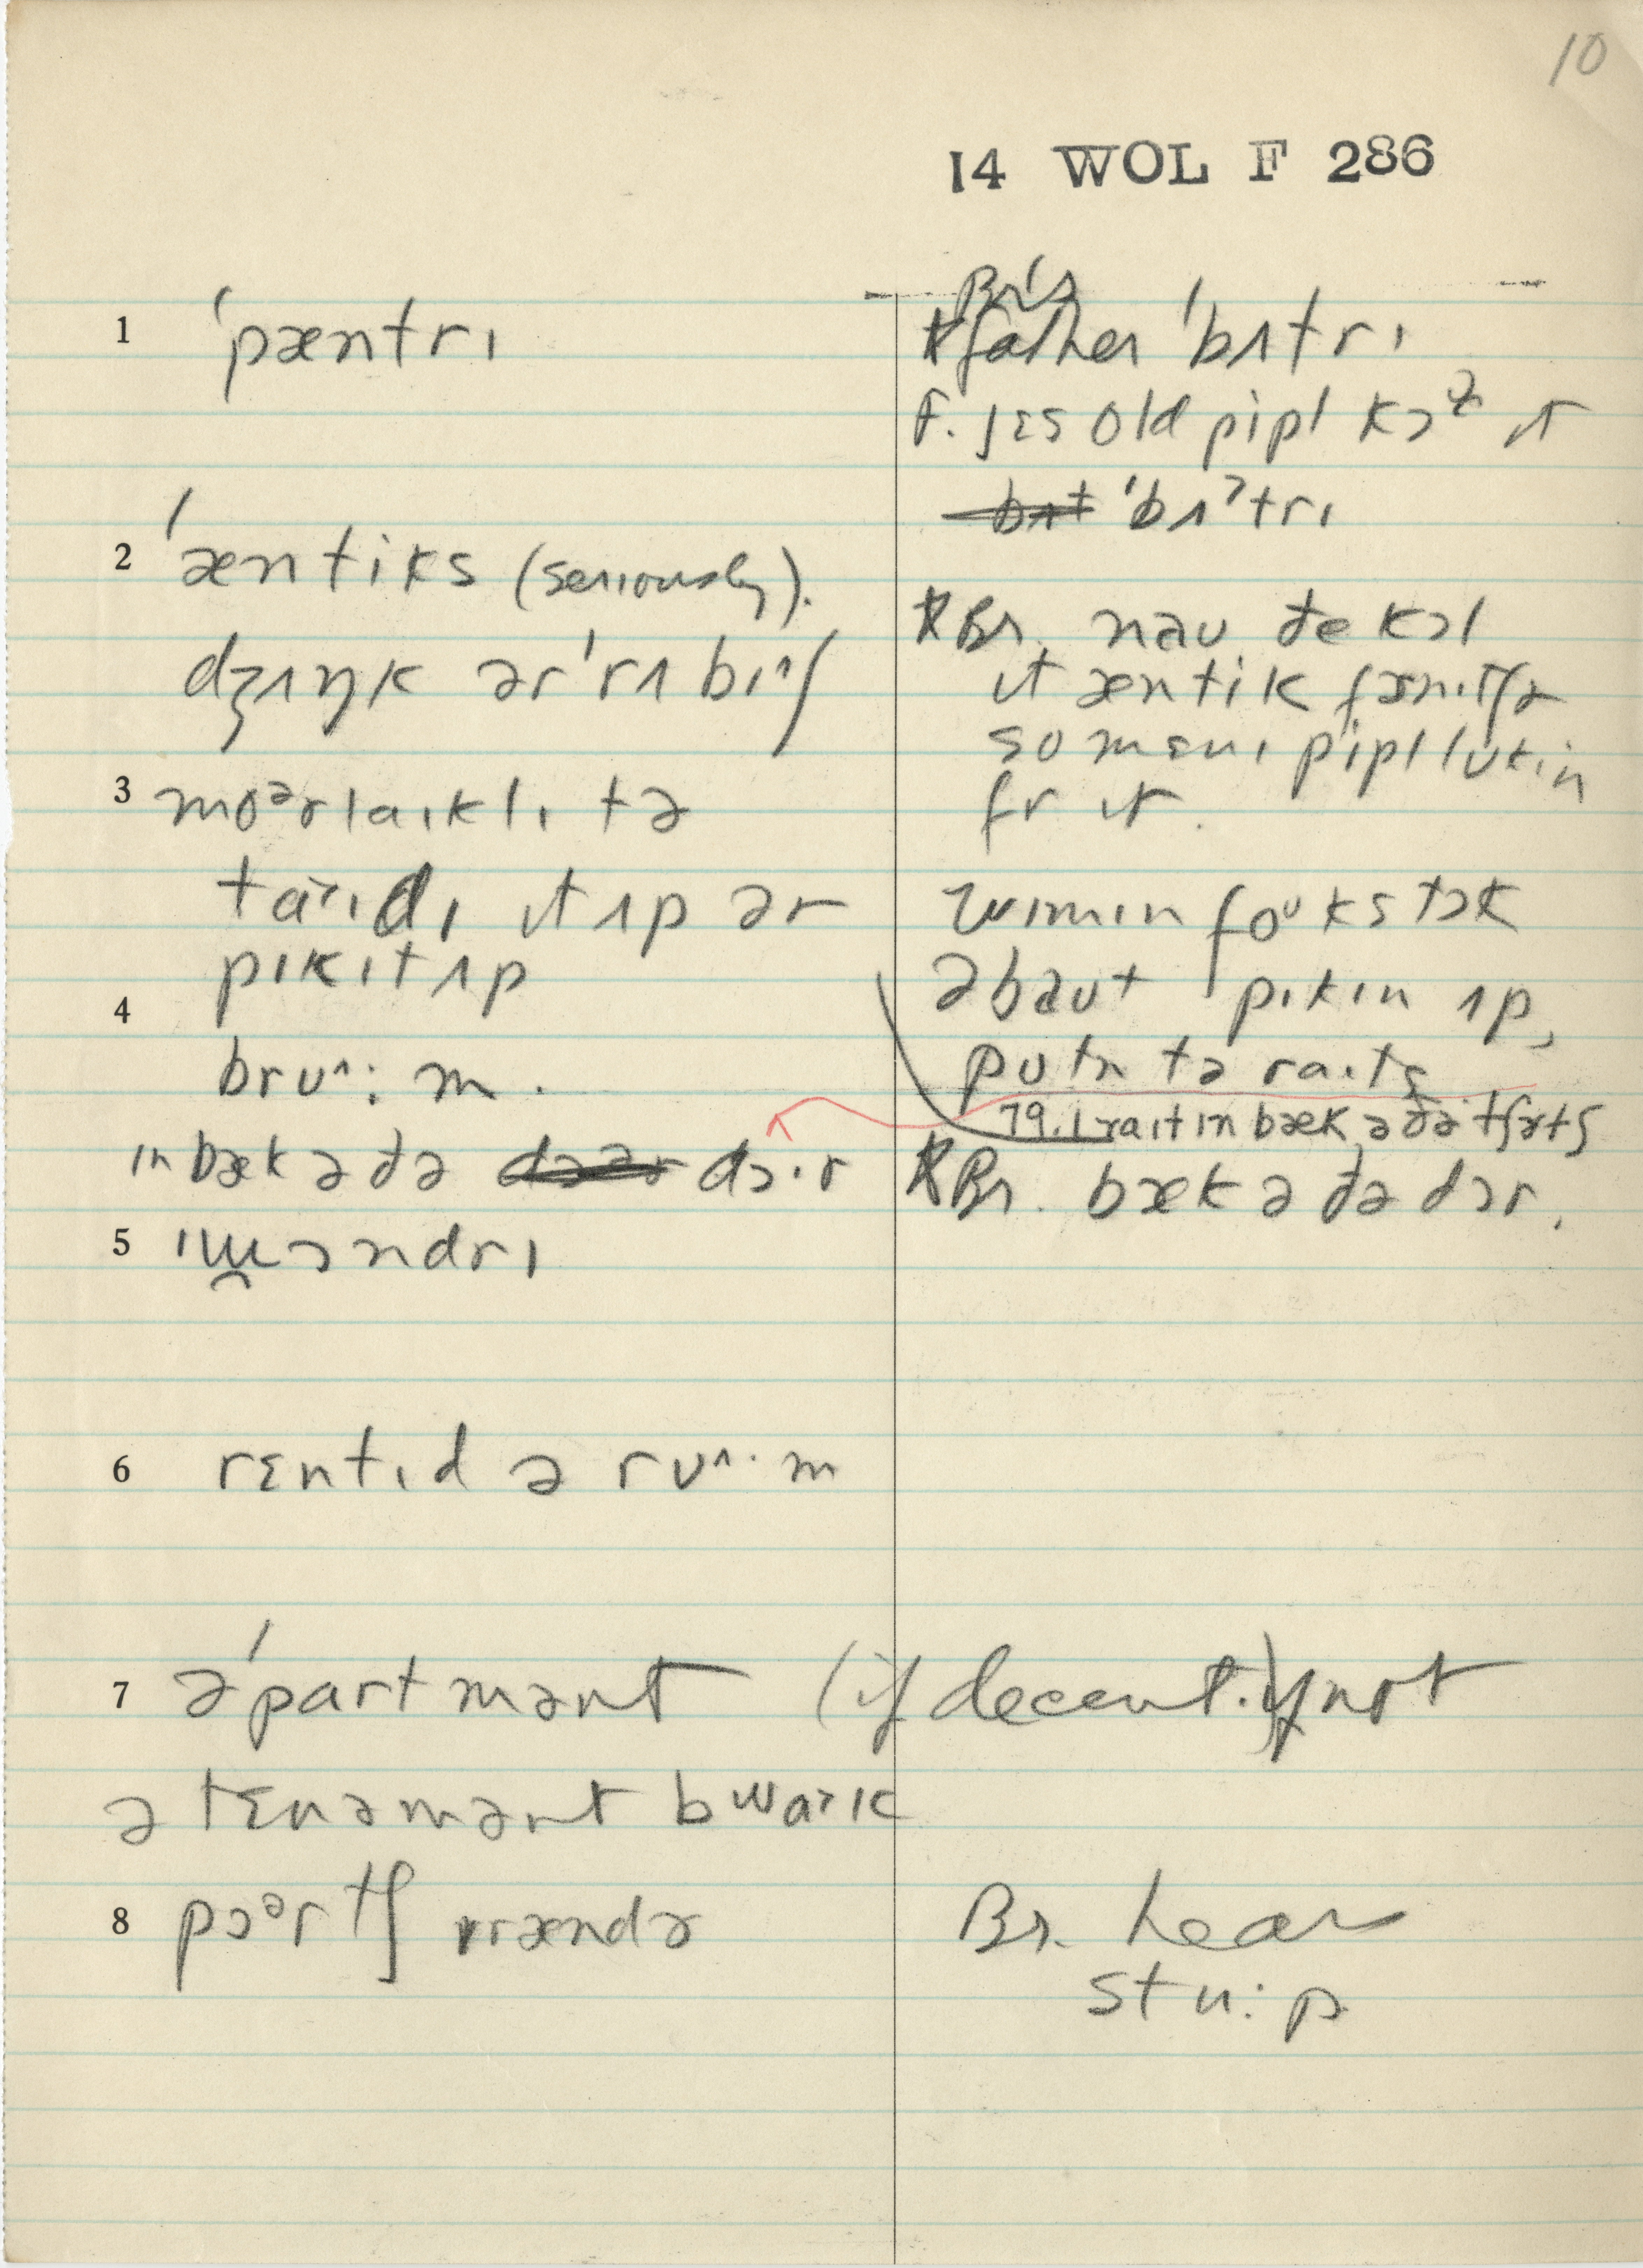 10
14 WOL F 286
1 ˈpæntrɪ
2 ˈæntiks (seriously).
dʒʌŋk ər ˈrʌbɪʃ
3 moᵊrlaɪklɪ tə
taɪdɪ ɪt ʌp ər
pɪkɪt ʌp
4
brʊ^:m.
ɪn bæk ə ðə dɔ·r
5
6 rɛntɪd ə rʊ^·m
7 əˈpartmənt (if decent.) if not
ə tɛnəmənt
8 pɔᵊrtʃ vrændə
Br's
father ˈbʌtrɪ
F. jɛs old pipl kɔl ɪt
ˈbʌˀtrɪ
Br. naʊ ðe kɔl
ɪt æntik fɝnɪtʃɚ
so mɛnɪ pipl lʊkin
fr ɪt.
wɪmɪn foᵘks tɔk
əbaʊt pɪkɪn ʌp,
pʊtn tə raɪts
79.1 raɪt ɪn bæk ə ðə tʃɝtʃ
Br. bæk ə ðə dɔr.
Br. hear
stu:p